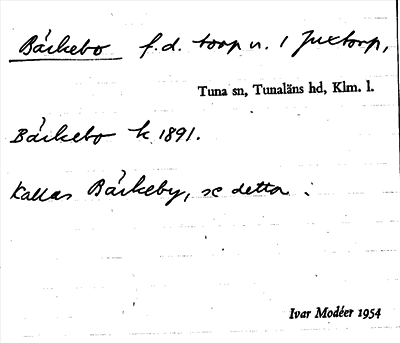 Bårkebo f.d. torp u. 1 Juxtorp,
Tuna sn, Tunaläns hd, Klm. l.
Bårkebo k 1891.
Kallas Bårkeby, se detta :
Ivar Modéer 1954